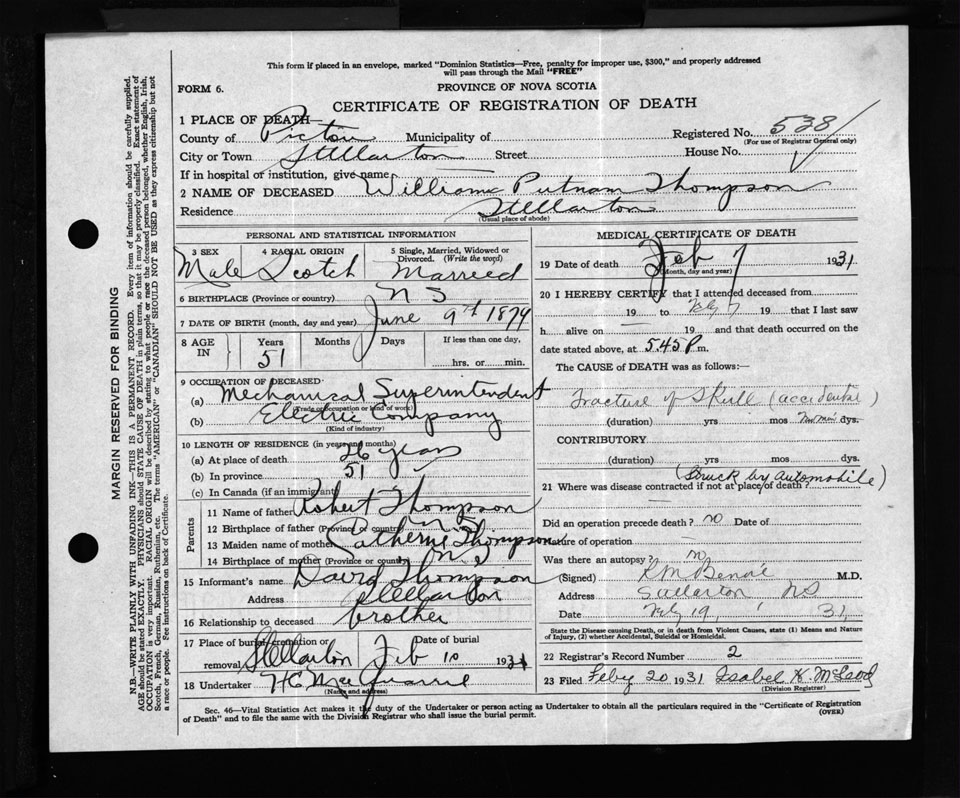 This form if placed in an envelope, marked "Dominion Statistics—Free, penalty for improper use, $300," and properly addressed
will pass through the Mail "FREE"
FORM 6.
PROVINCE OF NOVA SCOTIA
CERTIFICATE OF REGISTRATION OF DEATH
1 PLACE OF DEATH
County of Pictou Municipality of Registered No. 538
(For use of Registrar General only)
City or Town Stellarton Street House No.
If in hospital or institution, give name
2 NAME OF DECEASED William Putnam Thompson
Residence Stellarton
(Usual place of abode)
PERSONAL AND STATISTICAL INFORMATION
3 SEX 4 RACIAL ORIGIN 5 Single, Married, Widowed or Divorced. (Write the word)
Male Scotch Married
6 BIRTHPLACE (Province or country) N S
7 DATE OF BIRTH (month, day and year) June 9th 1879
8 AGE IN Years Months Days If less than one day,
51 hrs. or min.
9 OCCUPATION OF DECEASED
(a) Mechanical Superintendent
(Trade occupation or kind of work)
(b) Electric Company
(Kind of industry)
10 LENGTH OF RESIDENCE (in years and months)
(a) At place of death 26 years
(b) In province 51
(c) In Canada (if an immigrant)
Parents
11 Name of father Robert Thompson
12 Birthplace of father (Province or country) N S
13 Maiden name of mother Catherine Thompson
14 Birthplace of mother (Province or country) N S
15 Informant's name David Thompson
Address Stellarton
16 Relationship to deceased brother
17 Place of burial, cremation or removal Stellarton Date of burial Feb 10 1931
18 Undertaker H C MacQuarrie
(Name and address)
MEDICAL CERTIFICATE OF DEATH
19 Date of death Feb 7 1931
(Month, day and year)
20 I HEREBY CERTIFY that I attended deceased from
19 to Feby 7 19 that I last saw
h alive on 19 and that death occurred on
date stated above, at 5.45 P m.
The CAUSE of DEATH was as follows:—
Fracture of Skull (accidental)
(duration) yrs mos dys.
CONTRIBUTORY
(duration) yrs. mos. dys.
(Struck by automobile)
21 Where was disease contracted if not at place of death?
Did an operation precede death? no Date of
Nature of operation
Was there an autopsy? no
(Signed) M.D.
Address Stellarton NS
Date Feb 19 31
State the Disease causing Death, or in death from Violent Causes, state (1) Means and Nature of Injury, (2) whether Accidental, Suicidal or Homicidal.
22 Registrar's Record Number 2
23 Filed Feby 20 1931 Isabel K. McLeod
(Division Registrar)
Sec. 46—Vital Statistics Act makes it the duty of the Undertaker or person acting as Undertaker to obtain all the particulars required in the "Certificate of Registration
of Death" and to file the same with the Division Registrar who shall issue the burial permit.
(OVER)
MARGIN RESERVED FOR BINDING
N.B.—WRITE PLAINLY WITH UNFADING INK—THIS IS A PERMANENT RECORD. Every item of information should be carefully supplied.
AGE should be stated EXACTLY. PHYSICIANS should STATE CAUSE OF DEATH in plain terms, so that it may be properly classified. Exact statement of
OCCUPATION is very important. RACIAL ORIGIN will be described by stating to what people or race the deceased person belonged, whether English, Irish,
Scotch, French, German, Russian, Ruthenian, etc. The terms "AMERICAN" or "CANADIAN" SHOULD NOT BE USED as they express citizenship but not
a race or people. See instructions on back of Certificate.